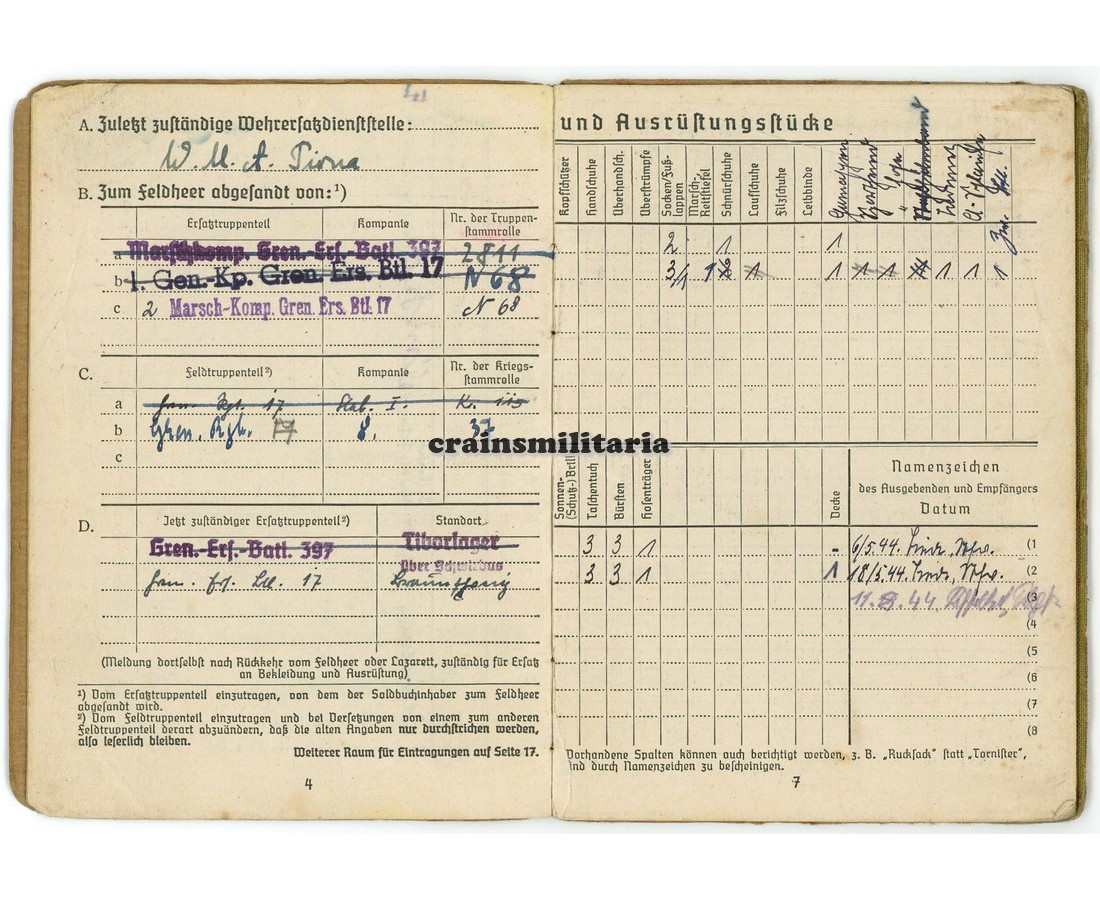 A. Zuletzt zuständige Wehrersatzdienststelle:
W. M. A. Pirna
B. Zum Feldheer abgesandt von:¹)
Ersatztruppenteil Kompanie Nr. der Truppen-
stammrolle
a Marschkomp. Gren.-Ers.-Batl. 397 2811
b 1. Gen.-Kp. Gren. Ers. Btl. 17 N 68
c 2 Marsch-Komp. Gren. Ers. Btl. 17 N 68
C. Feldtruppenteil²) Kompanie Nr. der Kriegs-
stammrolle
a Gren. Rgt. 17 Stab. I. K. 115
b Gren. Rgt. 17 8. 37
c
D. Jetzt zuständiger Ersatztruppenteil²) Standort
Gren.-Ers.-Batl. 397 Tiborlager
über Schwiebus
Gren. Ers. Btl. 17 Braunschweig
(Meldung dortselbst nach Rückkehr vom Feldheer oder Lazarett, zuständig für Ersatz
an Bekleidung und Ausrüstung)
¹) Vom Ersatztruppenteil einzutragen, von dem der Soldbuchinhaber zum Feldheer
abgesandt wird.
²) Vom Feldtruppenteil einzutragen und bei Versetzungen von einem zum anderen
Feldtruppenteil derart abzuändern, daß die alten Angaben nur durchstrichen werden,
also leserlich bleiben.
Weiterer Raum für Eintragungen auf Seite 17.
4
und Ausrüstungsstücke
Kopfschützer
Handschuhe
Überhandsch.
Überstrümpfe
Socken/Fuß-
lappen
Marsch-
Reitstiefel
Schnürschuhe
Laufschuhe
Filzschuhe
Leibbinde
Gamaschen
Hose
2 1 1
3/1 1 2 1 1 1 1 1 1 1 1
Sonnen-
(Schutz-) Brille
Taschentuch
Bürsten
Hosenträger
Decke
Namenzeichen
des Ausgebenden und Empfängers
Datum
3 3 1 - 6/5.44. (1
3 3 1 1 18/5.44. (2
11.8.44 (3
(4
(5
(6
(7
(8
Vorhandene Spalten können auch berichtigt werden, z. B. „Rucksack" statt „Tornister",
sind durch Namenzeichen zu bescheinigen.
7
crainsmilitaria